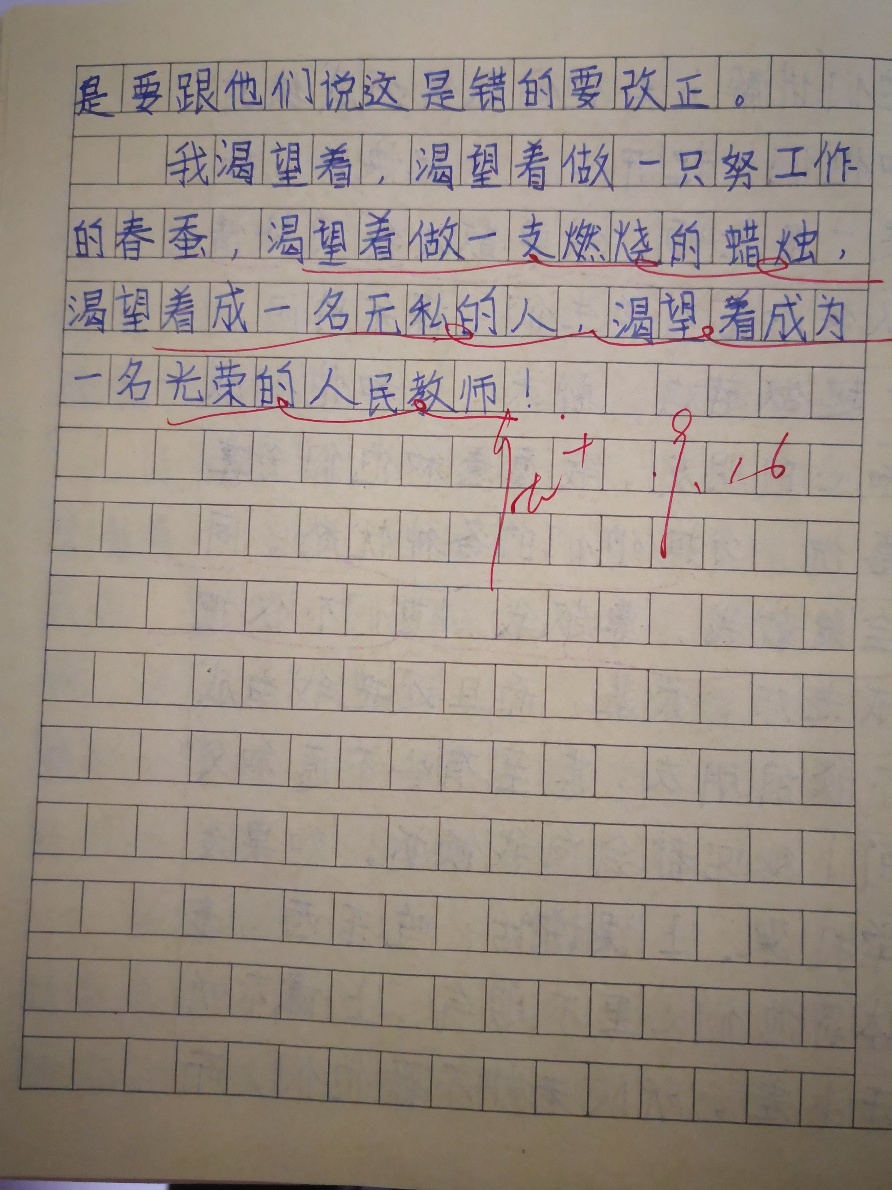 是要跟他们说这是错的要改正。
我渴望着，渴望着做一只努工作
的春蚕，渴望着做一支燃烧的蜡烛，
渴望着成一名无私的人，渴望着成为
一名光荣的人民教师！
9.16